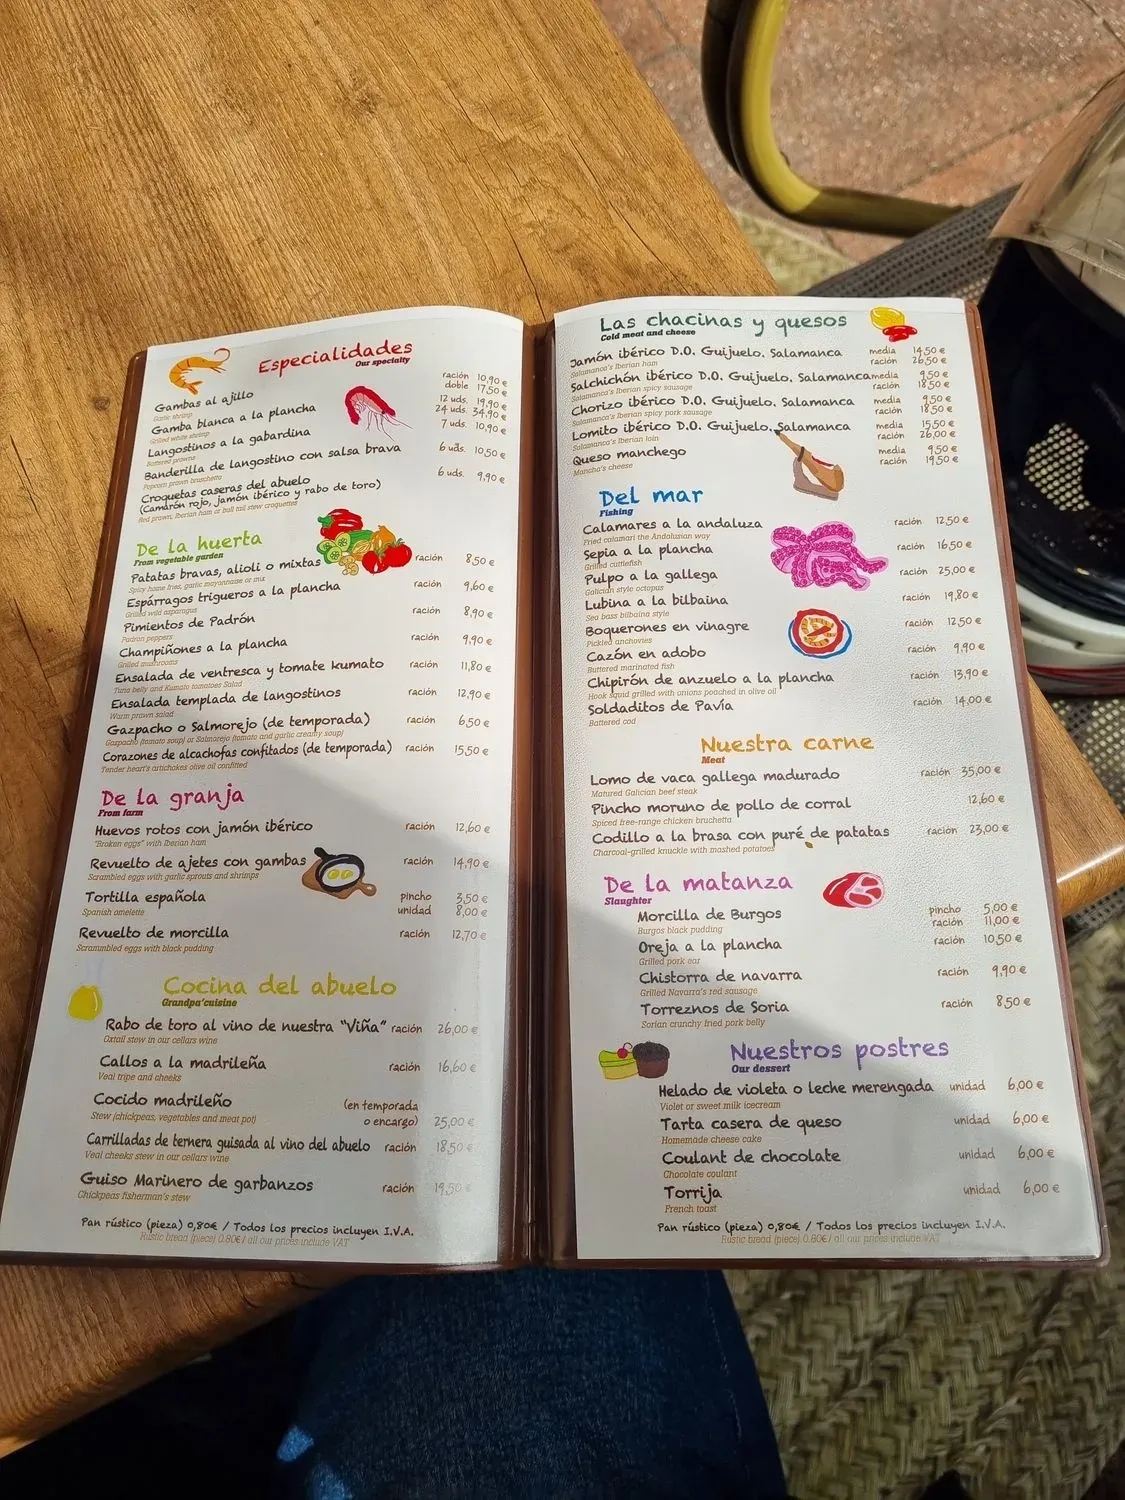 Especialidades
Our specialty
Gambas al ajillo ración 10,90 €
doble 17,50 €
Garlic shrimp
Gamba blanca a la plancha 12 uds. 19,90 €
24 uds. 34,90 €
Grilled white shrimp
Langostinos a la gabardina 7 uds. 10,90 €
Battered prawns
Banderilla de langostino con salsa brava 6 uds. 10,50 €
Popcorn prawn bruschetta
Croquetas caseras del abuelo 6 uds. 9,90 €
(Camarón rojo, jamón ibérico y rabo de toro)
Red prawn, Iberian ham or bull tail stew croquettes
De la huerta
From vegetable garden
Patatas bravas, alioli o mixtas ración 8,50 €
Spicy home fries, garlic mayonnaise or mix
Espárragos trigueros a la plancha ración 9,60 €
Grilled wild asparagus
Pimientos de Padrón ración 8,90 €
Padron peppers
Champiñones a la plancha ración 9,90 €
Grilled mushrooms
Ensalada de ventresca y tomate kumato ración 11,80 €
Tuna belly and Kumato tomatoes Salad
Ensalada templada de langostinos ración 12,90 €
Warm prawn salad
Gazpacho o Salmorejo (de temporada) ración 6,50 €
Gazpacho (tomato soup) or Salmorejo (tomato and garlic creamy soup)
Corazones de alcachofas confitados (de temporada) ración 15,50 €
Tender heart's artichokes olive oil confitted
De la granja
From farm
Huevos rotos con jamón ibérico ración 12,60 €
"Broken eggs" with Iberian ham
Revuelto de ajetes con gambas ración 14,90 €
Scrambled eggs with garlic sprouts and shrimps
Tortilla española pincho 3,50 €
Spanish omelette unidad 8,00 €
Revuelto de morcilla ración 12,70 €
Scrammbled eggs with black pudding
Cocina del abuelo
Grandpa'cuisine
Rabo de toro al vino de nuestra "Viña" ración 26,00 €
Oxtail stew in our cellars wine
Callos a la madrileña ración 16,60 €
Veal tripe and cheeks
Cocido madrileño (en temporada
Stew (chickpeas, vegetables and meat pot) o encargo) 25,00 €
Carrilladas de ternera guisada al vino del abuelo ración 18,50 €
Veal cheeks stew in our cellars wine
Guiso Marinero de garbanzos ración 19,50 €
Chickpeas fisherman's stew
Pan rústico (pieza) 0,80€ / Todos los precios incluyen I.V.A.
Rustic bread (piece) 0.80€ / all our prices include VAT
Las chacinas y quesos
Cold meat and cheese
Jamón ibérico D.O. Guijuelo. Salamanca media 14,50 €
Salamanca's Iberian ham ración 26,50 €
Salchichón ibérico D.O. Guijuelo. Salamanca media 9,50 €
Salamanca's Iberian spicy sausage ración 18,50 €
Chorizo ibérico D.O. Guijuelo. Salamanca media 9,50 €
Salamanca's Iberian spicy pork sausage ración 18,50 €
Lomito ibérico D.O. Guijuelo. Salamanca media 15,50 €
Salamanca's Iberian loin ración 26,00 €
Queso manchego media 9,50 €
Mancha's cheese ración 19,50 €
Del mar
Fishing
Calamares a la andaluza ración 12,50 €
Fried calamari the Andalusian way
Sepia a la plancha ración 16,50 €
Grilled cuttlefish
Pulpo a la gallega ración 25,00 €
Galician style octopus
Lubina a la bilbaina ración 19,80 €
Sea bass bilbaina style
Boquerones en vinagre ración 12,50 €
Pickled anchovies
Cazón en adobo ración 9,90 €
Buttered marinated fish
Chipirón de anzuelo a la plancha ración 13,90 €
Hook squid grilled with onions poached in olive oil
Soldaditos de Pavía ración 14,00 €
Battered cod
Nuestra carne
Meat
Lomo de vaca gallega madurado ración 35,00 €
Matured Galician beef steak
Pincho moruno de pollo de corral 12,60 €
Spiced free-range chicken bruchetta
Codillo a la brasa con puré de patatas ración 23,00 €
Charcoal-grilled knuckle with mashed potatoes
De la matanza
Slaughter
Morcilla de Burgos pincho 5,00 €
Burgos black pudding ración 11,00 €
Oreja a la plancha ración 10,50 €
Grilled pork ear
Chistorra de navarra ración 9,90 €
Grilled Navarra's red sausage
Torreznos de Soria ración 8,50 €
Sorian crunchy fried pork belly
Nuestros postres
Our dessert
Helado de violeta o leche merengada unidad 6,00 €
Violet or sweet milk icecream
Tarta casera de queso unidad 6,00 €
Homemade cheese cake
Coulant de chocolate unidad 6,00 €
Chocolate coulant
Torrija unidad 6,00 €
French toast
Pan rústico (pieza) 0,80€ / Todos los precios incluyen I.V.A.
Rustic bread (piece) 0.80€ / all our prices include VAT